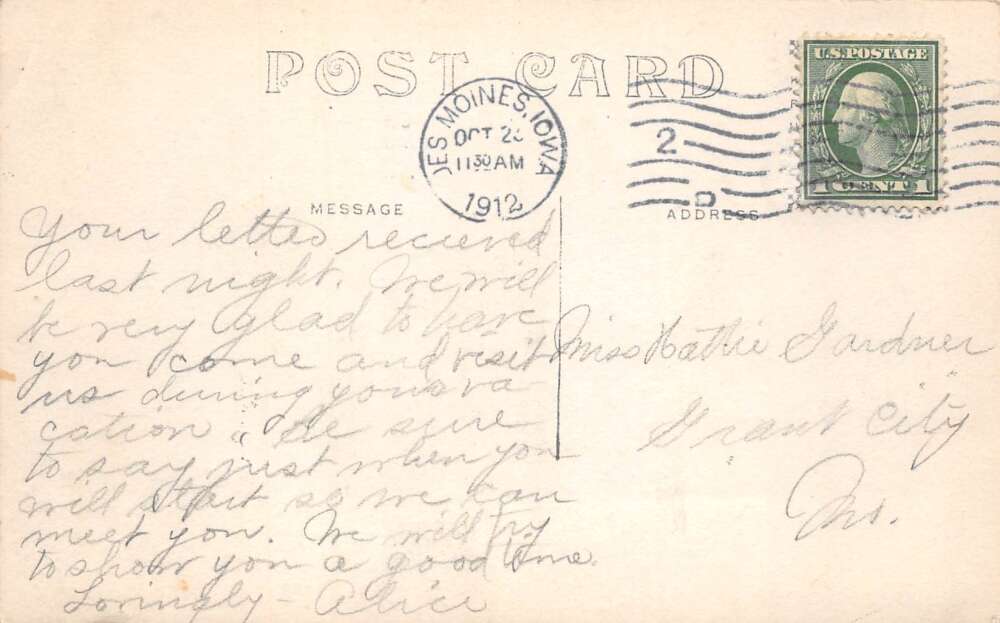 POST CARD
U.S. POSTAGE
1 CENT 1
DES MOINES, IOWA
OCT 2
11 30 AM
1912
2
D
MESSAGE
ADDRESS
Your letter recieved
last night. We will
be very glad to have
you come and visit
us during your va
cation. Be sure
to say just when you
will start so we can
meet you. We will try
to show you a good time.
Lovingly - Alice
Miss Hattie Gardner
Grant City
Mo.